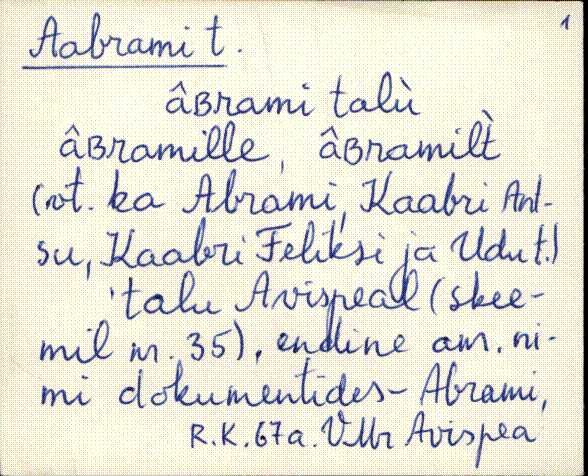 1
Aabrami t.
âʙrami talù
âʙramille, âʙramil̀t
(vt. ka Abrami, Kaabri Ant-
su, Kaabri Feliksi ja Udu t.)
'talu Avispeal (skee-
mil nr. 35), endine am. ni-
mi dokumentides - Abrami,
R.K. 67a. VMr Avispea